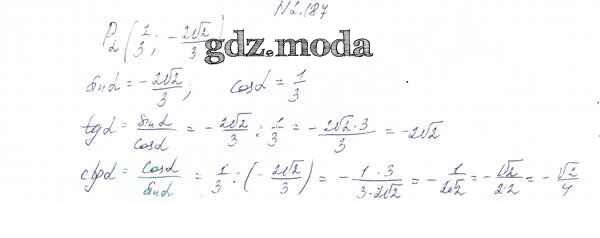 N2.187
P_α (1/3; -2√2/3)
gdz.moda
sin α = -2√2/3; cos α = 1/3
tg α = sin α/cos α = -2√2/3 : 1/3 = -2√2·3/3 = -2√2
ctg α = cos α/sin α = 1/3 : (-2√2/3) = -1·3/3·2√2 = -1/2√2 = -√2/2·2 = -√2/4